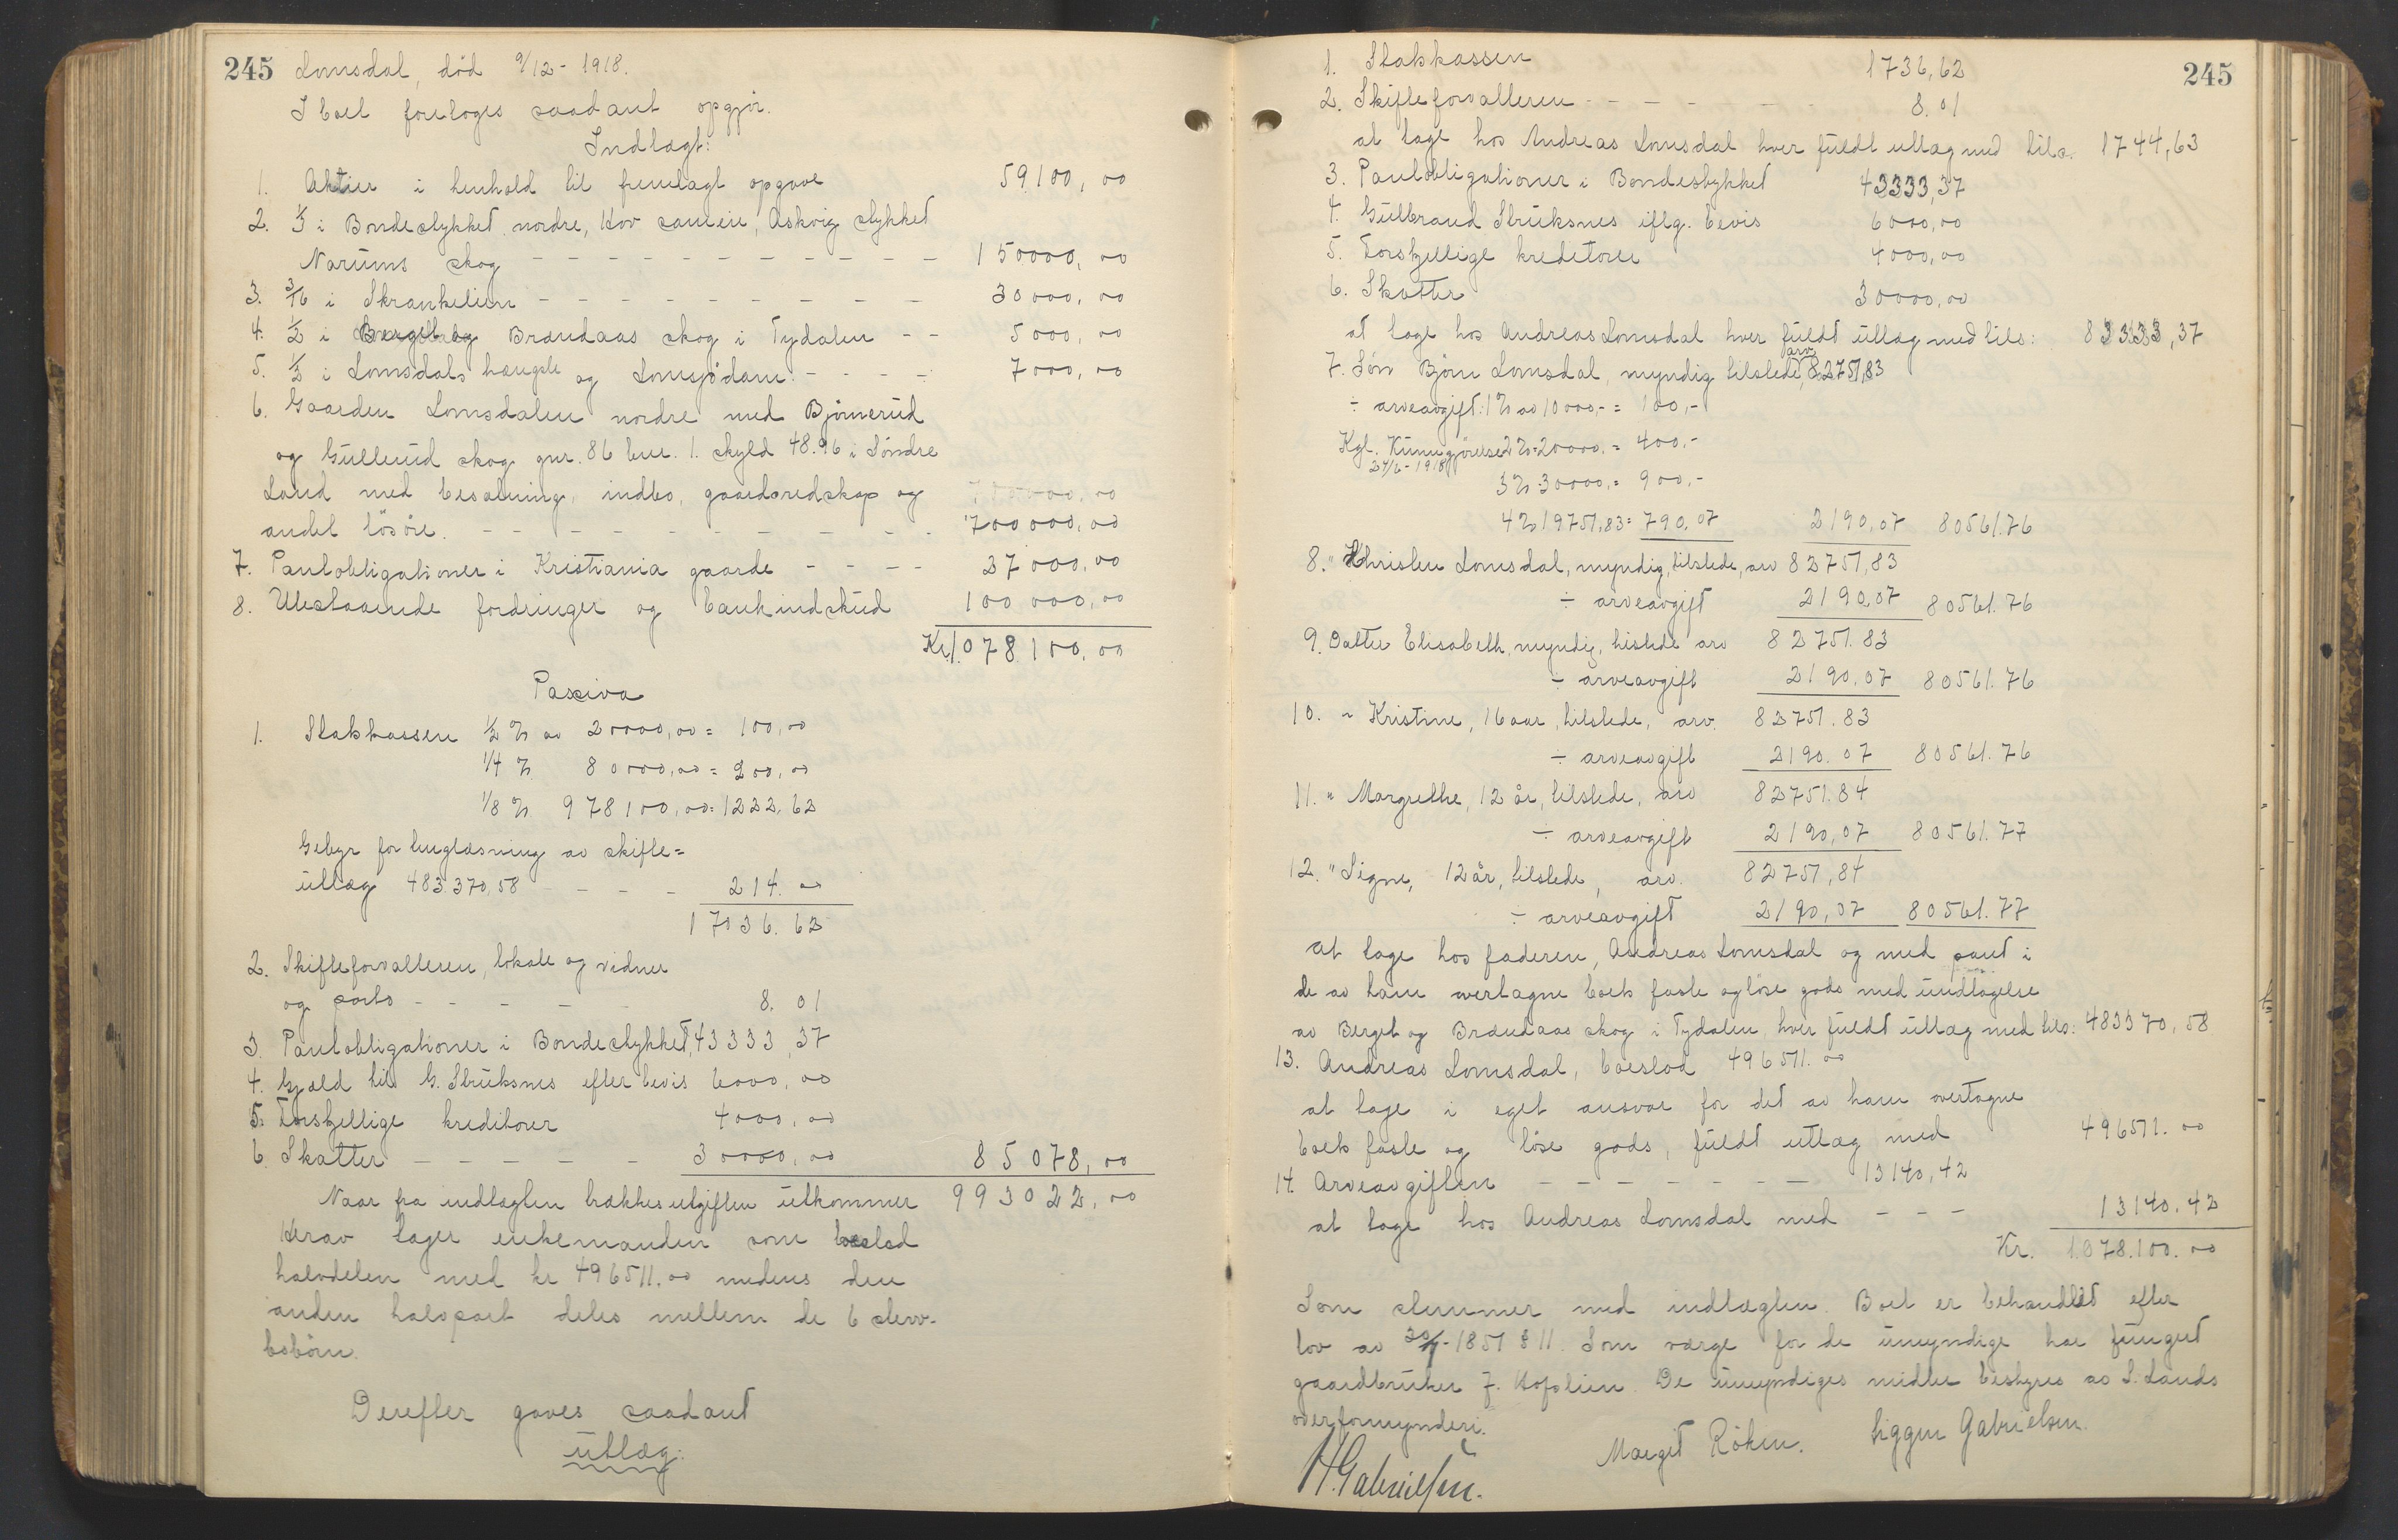 245 Lomsdal, død 9/12-1918.
I boet foretoges saadant opgjør.
Indtægt:
1. Aktier i henhold til fremlagt opgave 59100,00
2. 1/3 i Bondestykket nordre, Hov sameie, Askvig stykket
Narums skog - - - - - - - - - - 150000,00
3. 3/16 i Skrankelien - - - - - - - - - 30000,00
4. 1/2 i Berget og Brændaas skog i Tydalen - - 5000,00
5. 1/2 i Lomsdals hængsle og Lomsjødam. - - - - 7000,00
6. Gaarden Lomsdalen nordre med Bjørnerud
og Gullerud skog gnr. 86 bnr. 1. skyld 48.96 i Søndre
Land med besætning, indbo, gaardsredskap og
andet løsøre. - - - - - - - - - - - 700000,00
7. Pantobligationer i Kristiania gaarde - - - - 27000,00
8. Utestaaende fordringer og bankindskud 100000,00
Kr. 1.078100,00
Passiva
1. Statskassen 1/2 % av 20000,00 = 100,00
1/4 % 80000,00 = 200,00
1/8 % 978100,00 = 1222,62
Gebyr for tinglæsning av skifte=
utlæg 483370,58 - - - - 214.00
1736.62
2. Skifteforvalteren, lokale og vidner
og porto - - - - - 8.01
3. Pantobligationer i Bondestykket, 43333,37
4. Gjæld til G. Struksnes efter bevis 6000,00
5. Forskjellige kreditorer 4000,00
6. Skatter - - - - - - 30000,00 85078,00
Naar fra indtægten trækkes utgiften utkommer 993022,00
Herav tager enkemanden som boeslod
halvdelen med kr 496511.00 medens den
anden halvpart deles mellem de 6 sterv-
bobørn.
Derefter gaves saadant
utlæg:
245
1. Statskassen 1736,62
2. Skifteforvalteren - - - - - - 8.01
at tage hos Andreas Lomsdal hver fuldt utlæg med tils. 1744,63
3. Pantobligationer i Bondestykket 43333,37
4. Gulbrand Struksnes iflg. bevis 6000,00
5. Forskjellige kreditorer 4000,00
6. Skatter 30000,00
at tage hos Andreas Lomsdal hver fuldt utlæg med tils: 83333,37
7. Søn Bjørn Lomsdal, myndig tilstede, arv 82751,83
÷ arveavgift: 1 % av 10000,- = 100,-
Kgl. Kunngjørelse 2 % - 20000,- = 400,-
24/6-1918
3 % 30000,- = 900,-
4 % 19751,83 = 790,07 2190,07 80561.76
8. " Christen Lomsdal, myndig, tilstede, arv 82751,83
÷ arveavgift 2190,07 80561.76
9. Datter Elisabeth, myndig, tilstede arv 82751.83
÷ arveavgift 2190,07 80561.76
10. " Kristine, 16 aar, tilstede, arv. 82751.83
÷ arveavgift 2190.07 80561.76
11. " Margrethe, 12 år, tilstede, arv 82751.84
÷ arveavgift 2190,07 80561.77
12. " Signe, 12 år, tilstede, arv. 82751,84
÷ arveavgift 2190,07 80561.77
at tage hos faderen, Andreas Lomsdal og med pant i
de av ham overtagne boets faste og løse gods med undtagelse
av Berget og Brændaas skog i Tydalen, hver fuldt utlæg med tils: 483370,58
13. Andreas Lomsdal, boeslod 496511.00
at tage i eget ansvar for det av ham overtagne
boets faste og løse gods, fuldt utlæg med 496511.00
14. Arveavgiften - - - - - - - 13140,42
at tage hos Andreas Lomsdal med - - - 13140.42
Kr. 1.078.100.00
Som stemmer med indtægten. Boet er behandlet efter
lov av 30/7-1851 § 11. Som værge for de umyndige har fungert
gaardbruker J. Hofslien. De umyndiges midler bestyres av S. Lands
overformynderi.
Margit Røken. Siggen Gabrielsen.
H. Gabrielsen.